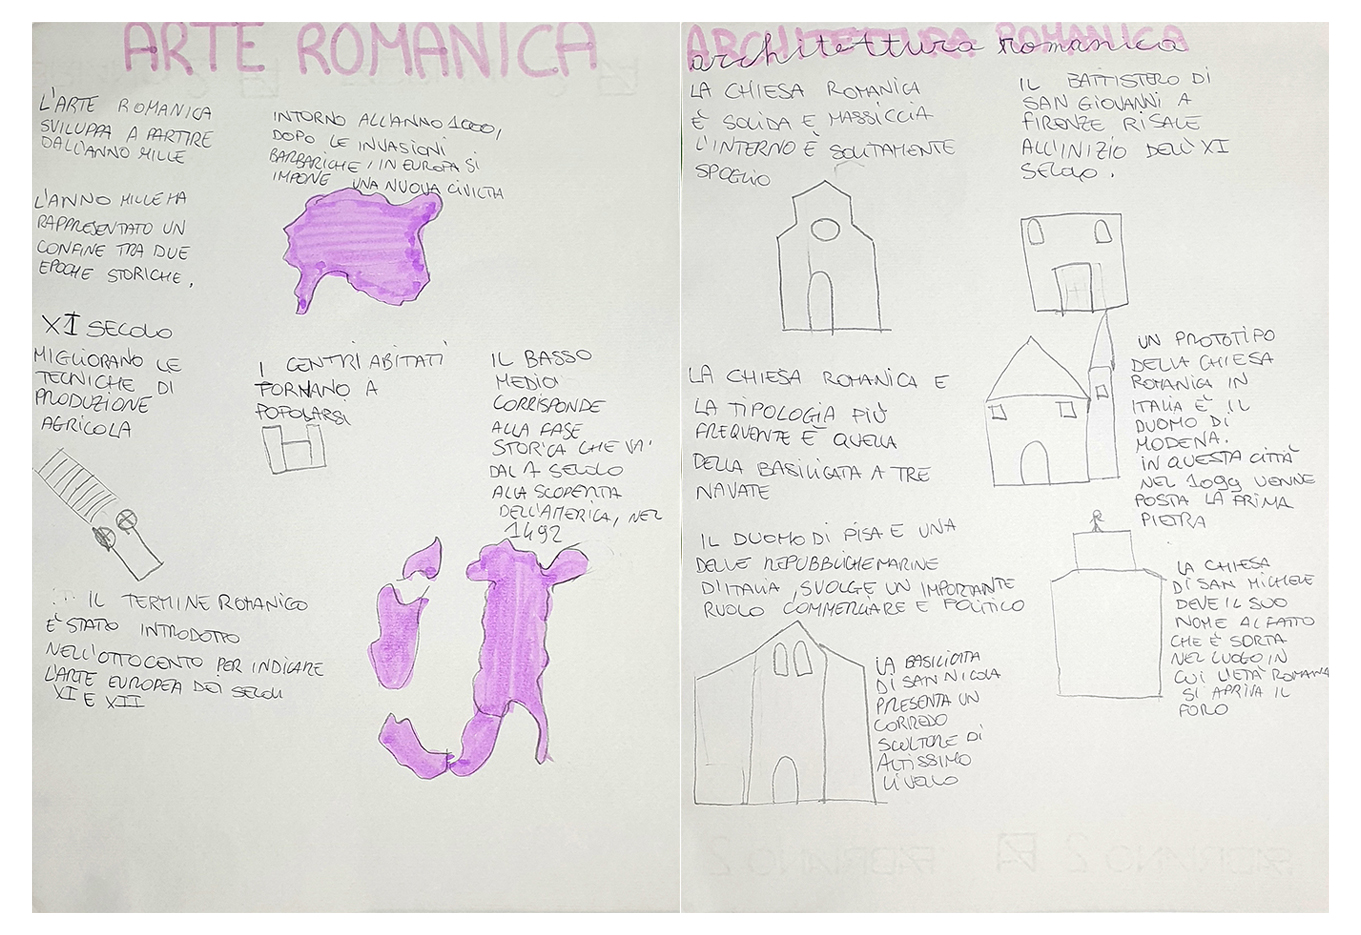 ARTE ROMANICA
L'ARTE ROMANICA
SVILUPPA A PARTIRE
DALL'ANNO MILLE
INTORNO ALL'ANNO 1000,
DOPO LE INVASIONI
BARBARICHE, IN EUROPA SI
IMPONE UNA NUOVA CIVILTIA
L'ANNO MILLE HA
RAPPRESENTATO UN
CONFINE TRA DUE
EPOCHE STORICHE.
XI SECOLO
MIGLIORANO LE
TECNICHE DI
PRODUZIONE
AGRICOLA
I CENTRI ABITATI
TORNANO A
POPOLARSI
IL BASSO
MEDIOI
CORRISPONDE
ALLA FASE
STORICA CHE VA'
DAL 1 SECOLO
ALLA SCOPERTA
DELL'AMERICA, NEL
1492
IL TERMINE ROMANICO
E' STATO INTRODOTTO
NELL'OTTOCENTO PER INDICARE
L'ARTE EUROPEA DEI SECOLI
XI E XII
ARCHITETTURA ROMANICA
architettura romanica
LA CHIESA ROMANICA
È SOLIDA E MASSICCIA
L'INTERNO È SOLITAMENTE
SPOGLIO
IL BATTISTERO DI
SAN GIOVANNI A
FIRENZE RISALE
ALL'INIZIO DELL'XI
SECOLO.
LA CHIESA ROMANICA E
LA TIPOLOGIA PIÙ
FREQUENTE È QUELLA
DELLA BASILIGATA A TRE
NAVATE
UN PROTOTIPO
DELLA CHIESA
ROMANICA IN
ITALIA È IL
DUOMO DI
MODENA.
IN QUESTA CITTÀ
NEL 1099 VENNE
POSTA LA PRIMA
PIETRA
IL DUOMO DI PISA E UNA
DELLE REPUBBLICHE MARINE
D'ITALIA, SVOLGE UN IMPORTANTE
RUOLO COMMERCIARE E POLITICO
LA BASILICATA
DI SAN NICOLA
PRESENTA UN
CORREDO
SCULTORE DI
ALTISSIMO
LIVELLO
LA CHIESA
DI SAN MICHELE
DEVE IL SUO
NOME AL FATTO
CHE È SORTA
NEL LUOGO IN
CUI L'ETÀ ROMANA
SI APRIVA IL
FORO